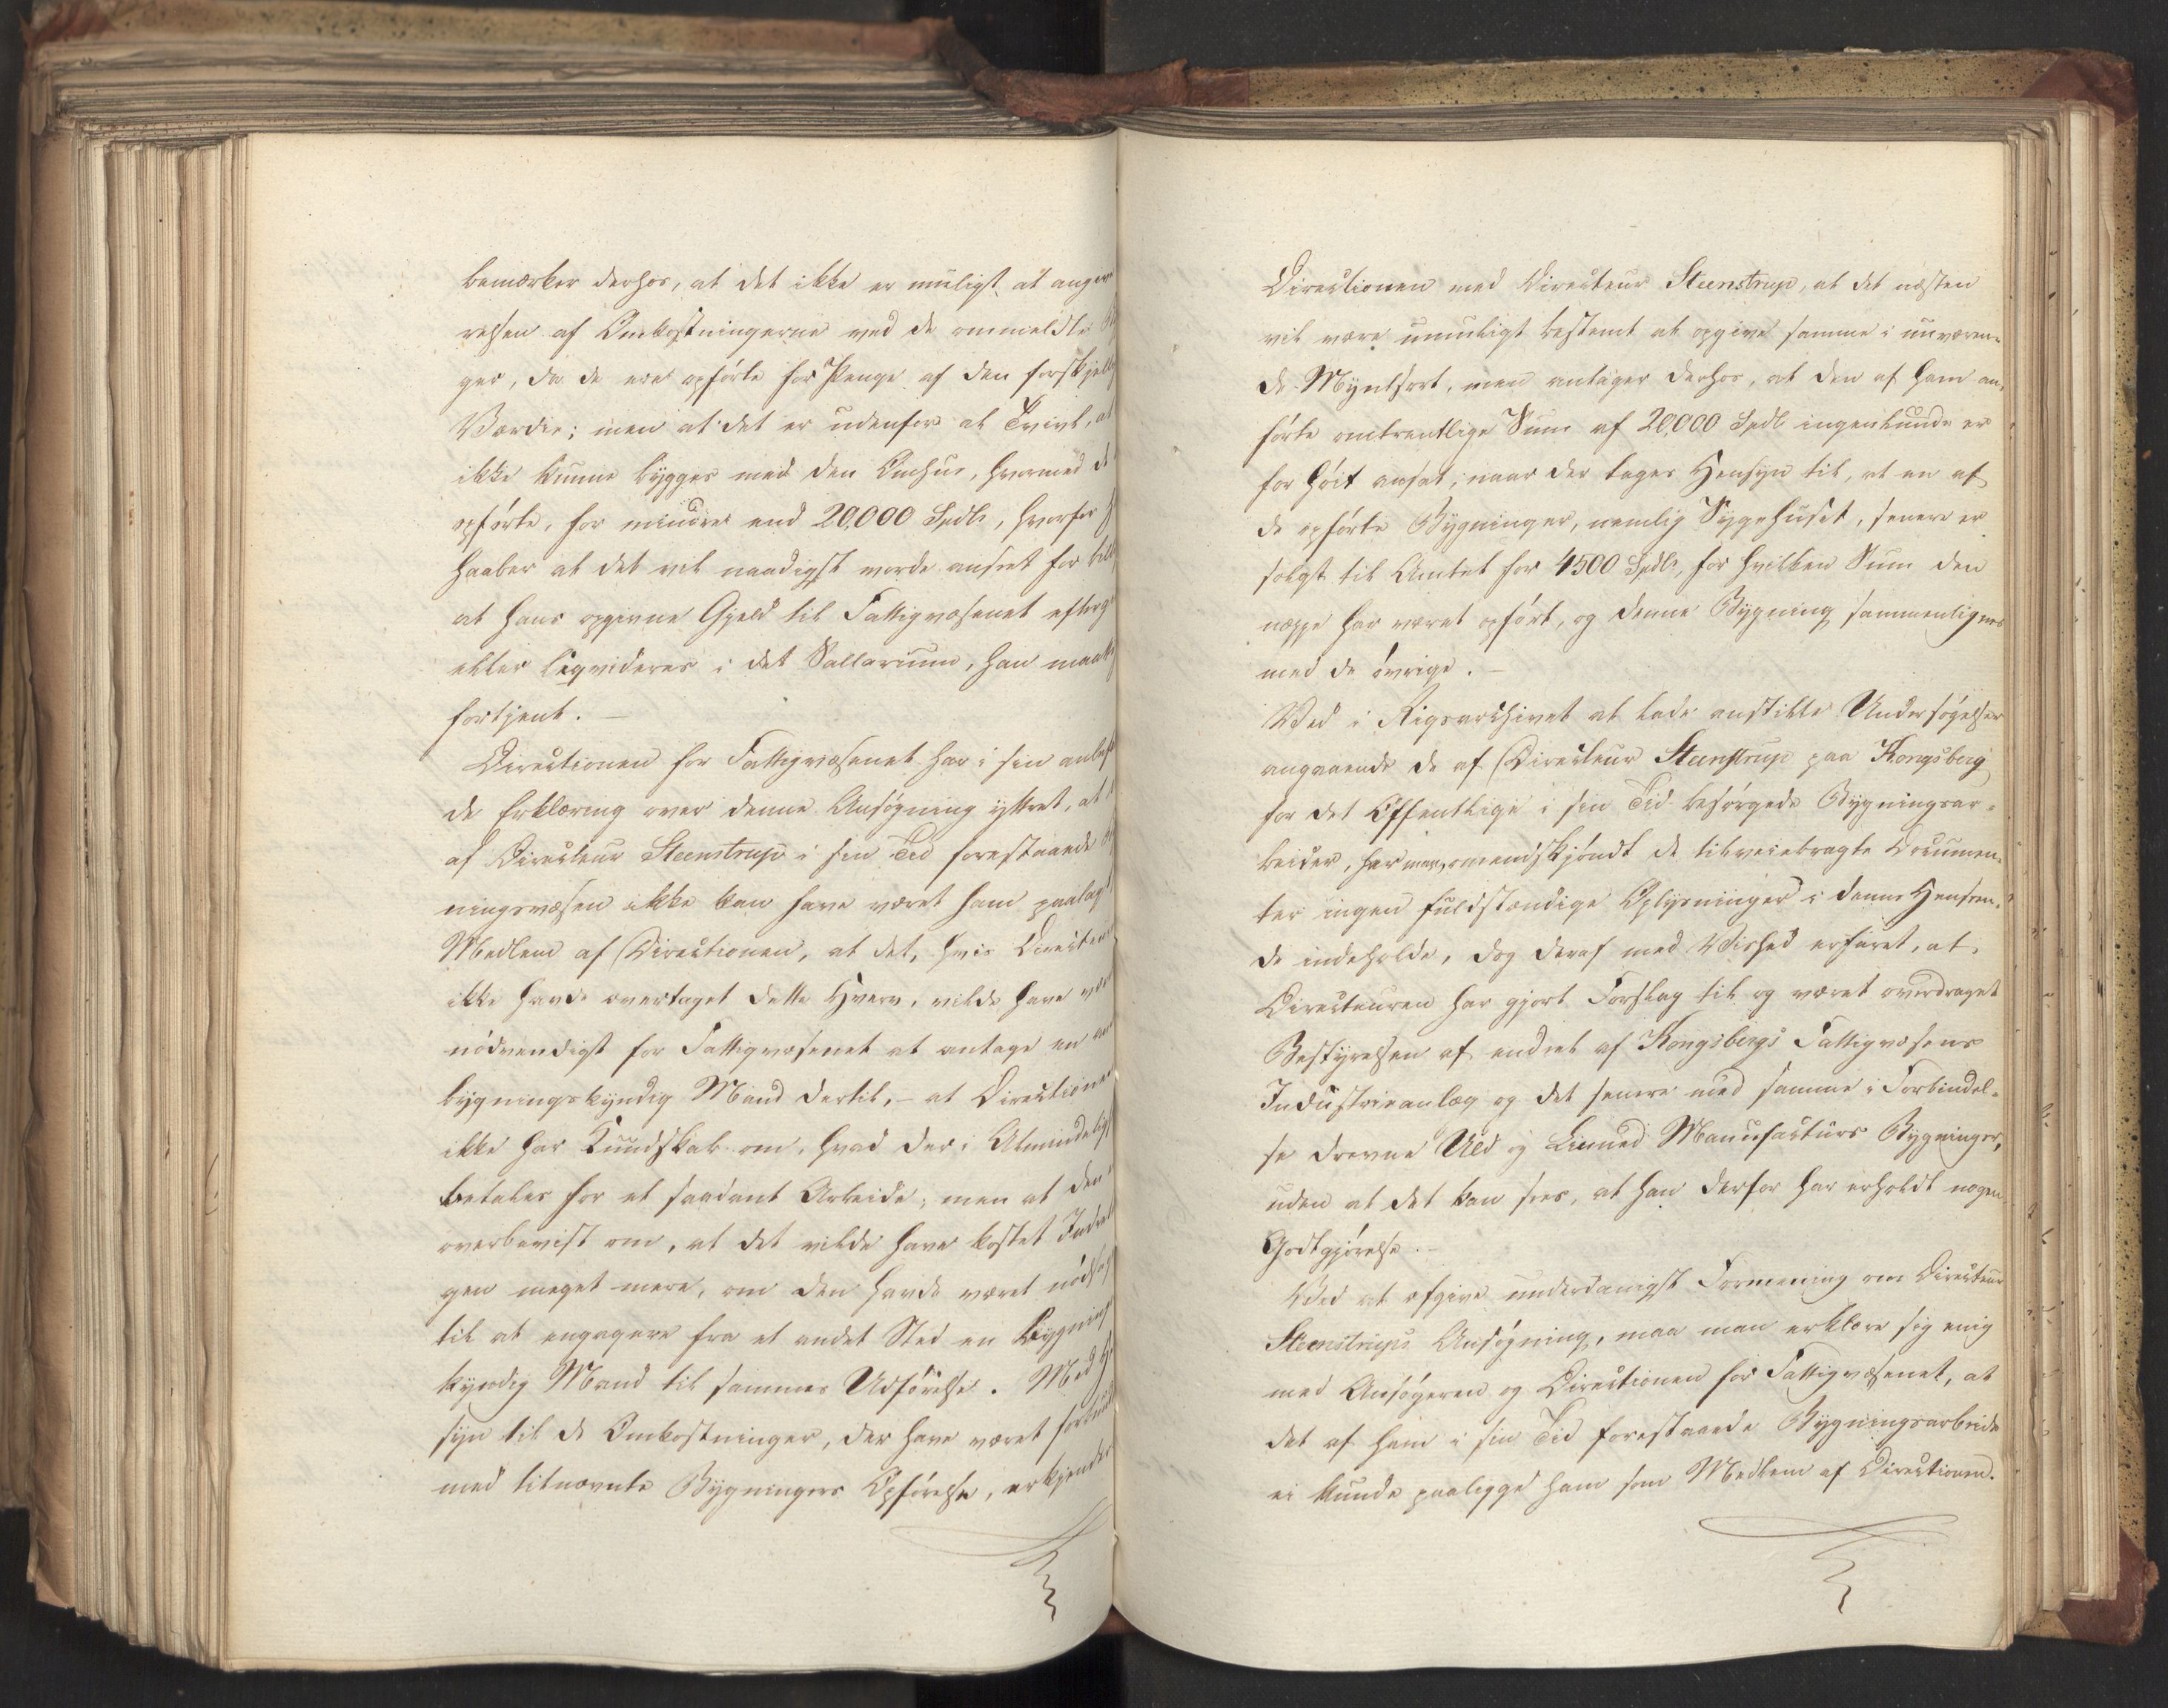 bemærker derhos, at det ikke er muligt at angive
relsen af Omkostningerne ved de ommeldte
ger, da de ere opførte for Penge af den forskjellig
Værdie; men at det er udenfor al Tvivl, at
ikke kunne bygges med den Omhue, hvormed de
opførte, for mindre end 20,000 Spdlr, hvorfor
haaber at det vil naadigst vorde anseet for bill
at hans opgivne Gjeld til Fattigvæsenet efterg
eller liqvideres i det Sallarium, han maatte
fortjent. —
Directionen for Fattigvæsenet har i sin anbef
de Erklæring over denne Ansøgning yttret, at
af Directeur Steenstrup i sin Tid forestaaede
ningsvæsen ikke kan have været ham paalagt
Medlem af Directionen, at det, hvis Directeuren
ikke havde overtaget dette Hverv, vilde have været
nødvendigt for Fattigvæsenet at antage en
bygningskyndig Mand dertil, – at Directionen
ikke har Kundskab om, hvad der i Almindelighed
betales for et saadant Arbeide; men at den
overbeviist om, at det vilde have kostet Indret
gen meget mere, om den havde været nødsag
til at engagere fra et andet Sted en bygnings
kyndig Mand til sammes Udførelse. Med
syn til de Omkostninger, der have været forbund
med bemævnte Bygningers Opførelse, erkjender
Directionen med Directeur Steenstrup, at det næsten
vil være umuligt bestemt at opgive samme i nuværen-
de Myntsort, men antager derhos, at den af ham an-
førte omtrentlige Sum af 20,000 Spdlr ingenlunde er
for høit ansat, naar der tages Hensyn til, at en af
de opførte Bygninger, nemlig Sygehuset, senere er
solgt til Amtet for 4500 Spdlr, for hvilken Sum den
neppe har været opført, og denne Bygning sammenlignes
med de øvrige. —
Ved i Rigsarchivet at lade anstille Undersøgelser
angaaende de af Directeur Steenstrup paa Kongsberg
for det Offentlige i sin Tid besørgede Bygningsar-
beider, har man, omendskjøndt de tilveiebragte Documen-
ter ingen fuldstændige Oplysninger i denne Henseen-
de indeholde, dog deraf med Vished erfaret, at
Directeuren har gjort Forslag til og været overdraget
Bestyrelsen af endeel af Kongsbergs Fattigvæsens
Industrieanlæg og det senere med samme i Forbindel-
se drevne Uld og Linned Manufacturs Bygninger,
uden at det kan sees, at han derfor har erholdt nogen
Godtgjørelse. —
Ved at afgive underdanigst Formening om Directeur
Steenstrups Ansøgning, maa man erklære sig enig
med Ansøgeren og Directionen for Fattigvæsenet, at
det af ham i sin Tid forestaaede Bygningsarbeide
ei kunde paaligge ham som Medlem af Directionen.